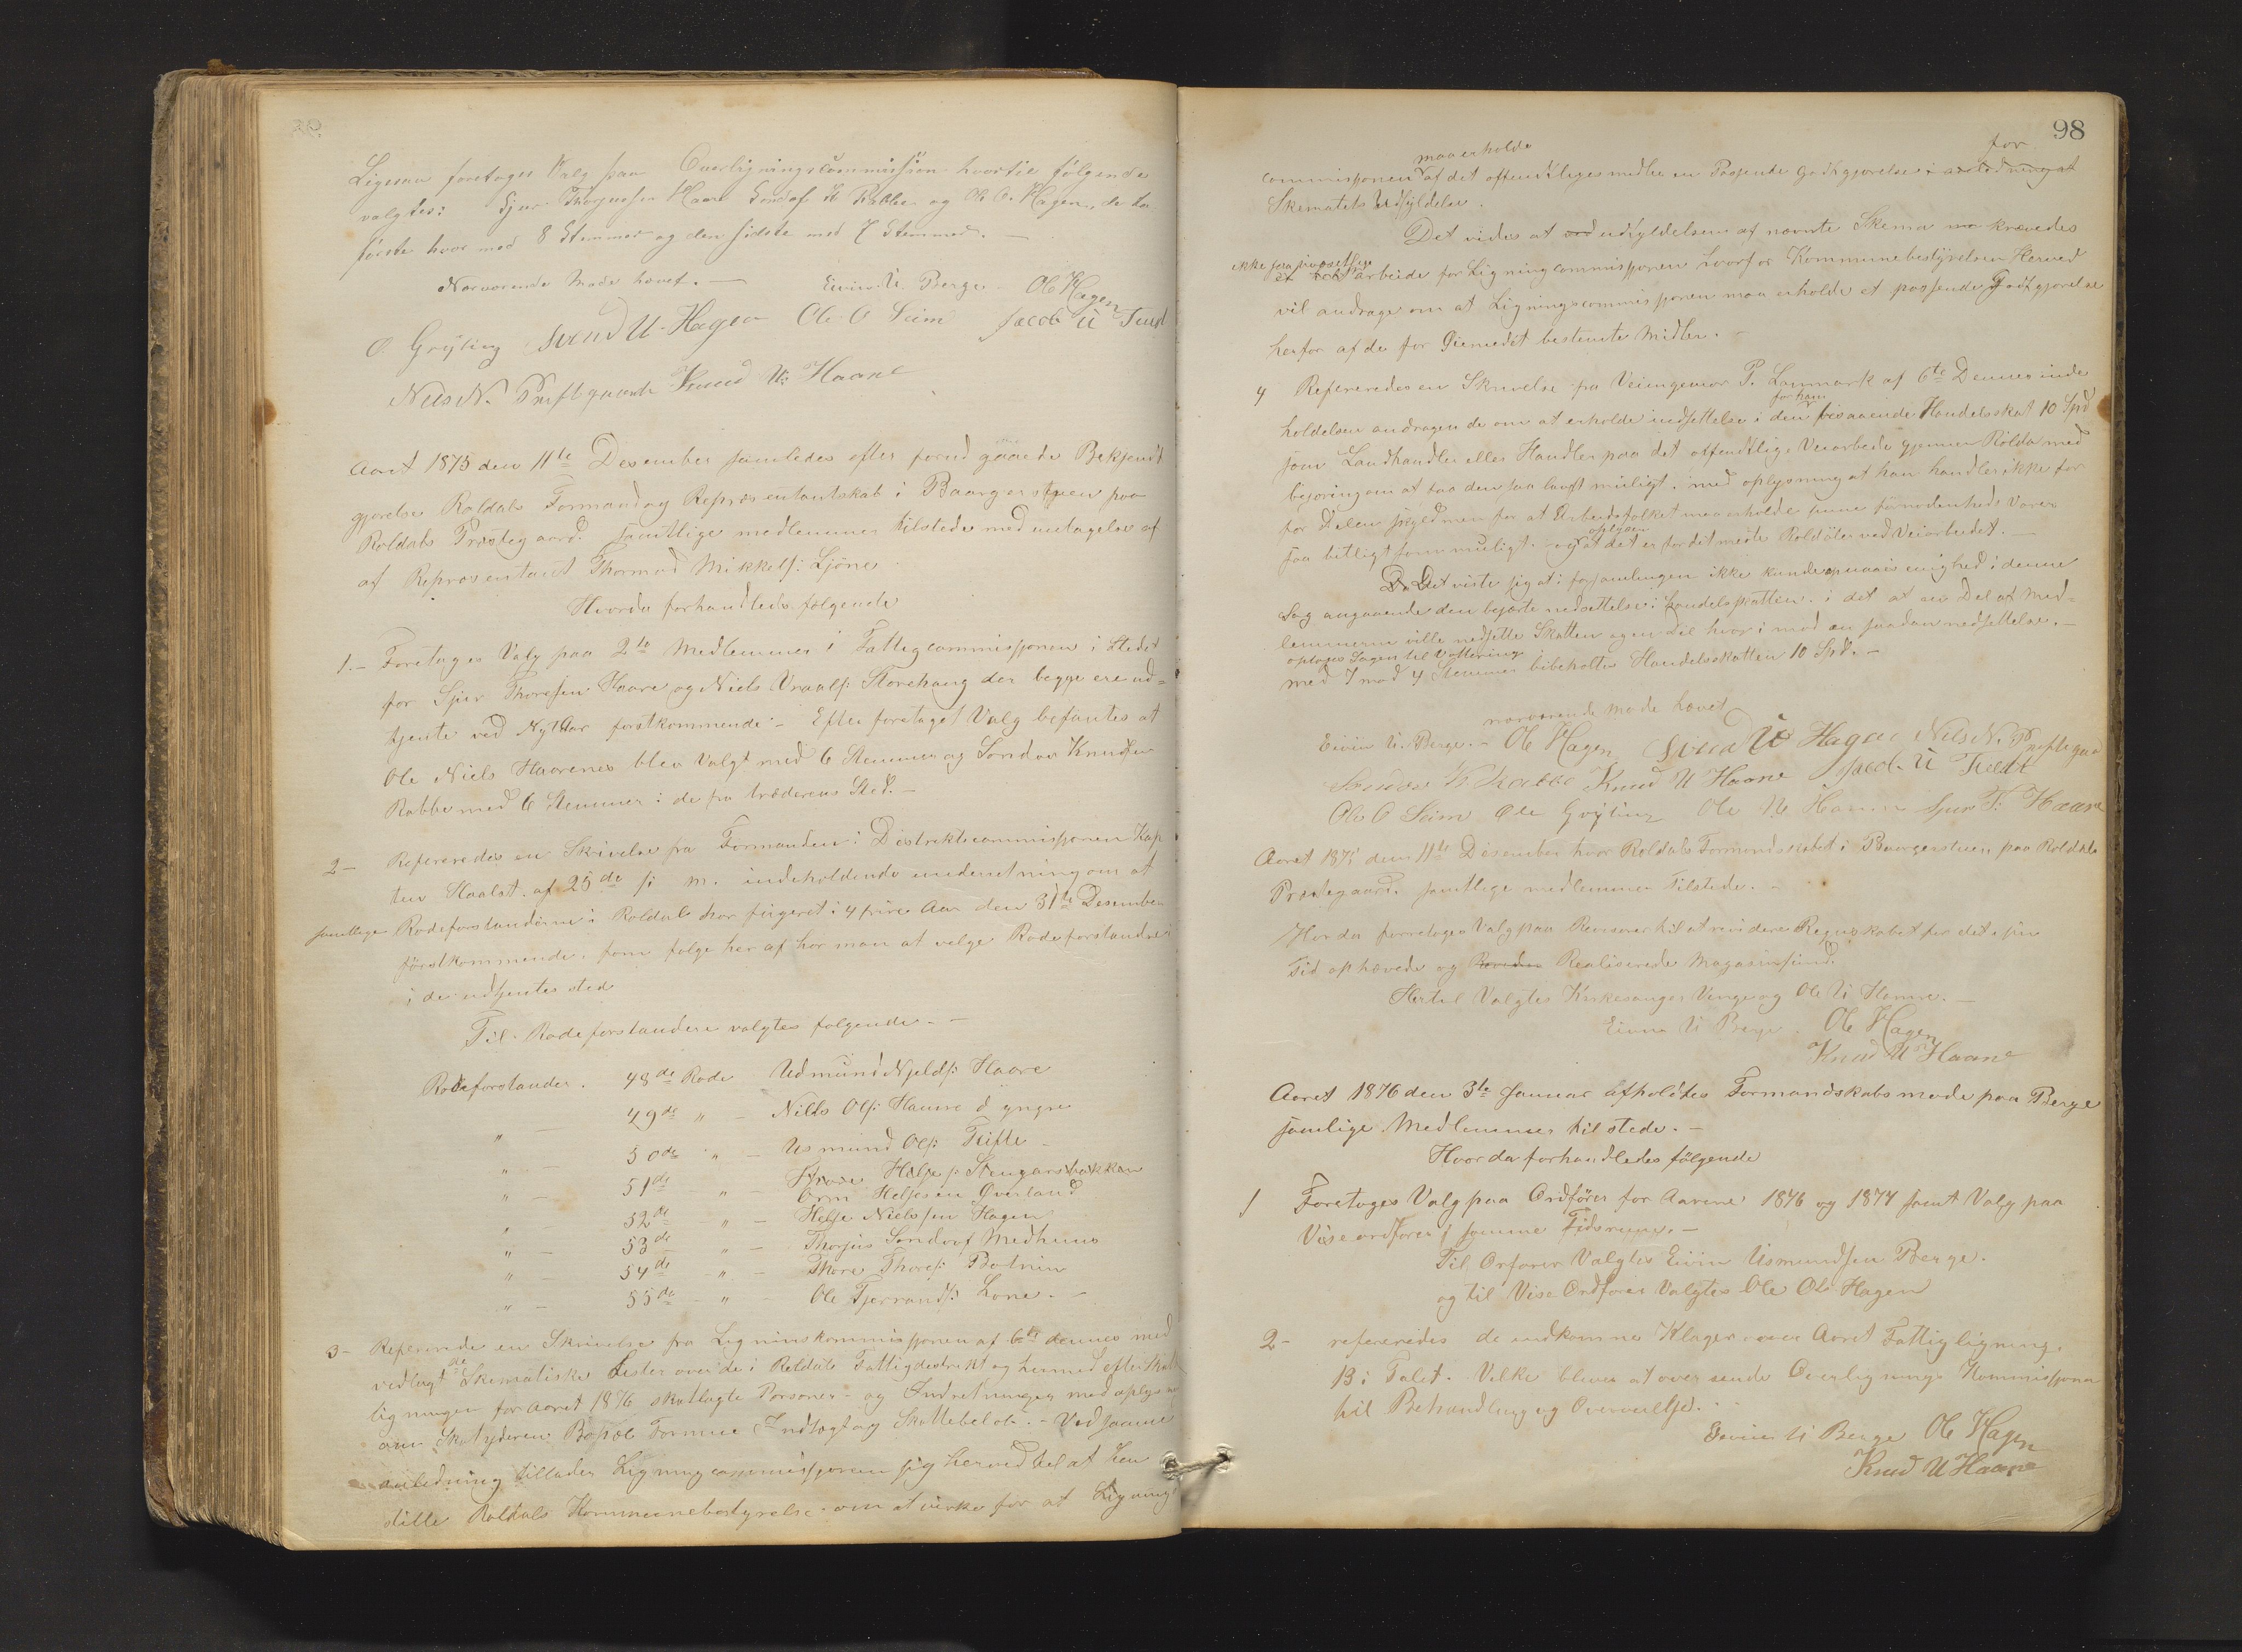 Ligesaa foretoges Valg paa Overligningscommission hvortil følgende
valgtes: Sjur Haare Sondof K Rabbe og Ole O. Hagen, de to
første hver med 8 Stemmer og den sidste med 7 Stemmer. —
Nærværende Møde hævet. — Eivin U. Berge Ole Hagen
O. Grýting Svend U. Hagen Ole O Seim Jacob U
Nils N. Prestgaard Knud U: Haare
Aaret 1875 den 11te Desember samledes efter forud gaaende Bekjendt
gjørelse Røldals Formandog Repræsentantskab i Baargerstuen paa
Røldals Præstegaard. Samtlige medlemmer tilstede med untagelse af
af Representant Thormod Mikkels: Ljöne
Hvorda forhandledes følgende
1. – Foretages Valg paa 2de Medlemmer i Fattigcommissjonen i Stedet
for Sjur Thoresen Haare og Niels Vraals: Storehaug der begge ere ud-
tjente ved Nyttaar førstkommende. – Efter foretaget Valg befantes at
Ole Niels Haarenes blev Valgt med 6 Stemmer og Sondov Knudsen
Rabbe med 6 Stemmer i de fra træderens Sted. –
2 – Refereredes en Skrivelse fra Formanden i Distriktscommissjonen Kap
ten Haalst. af 25de f: m. indeholdende underretning om at
samtlige Rodeforstanderne i Röldal har fûngeret i 4 fire Aar den 31te Desember
förstkommende, som følge her af har man at velge Rodeforstandere
i de udtjentes sted
Til Rodeforstandere valgtes følgende. —
Rodeforstander. 48de Rode Udmund Njelds: Haare
" — 49de " — Nills Ols: Hamre d yngre
" — 50de " — Usmund Ols:
" — 51de " — Helje s: Stengarsbakken
Orm Heljesen Øverland
" 52de — " — Helje Nielssen Hagen
" — 53de — " — Thorjus Sondovs Medhuus
" — 54de — " — Thore Thores: Botnen
" — 55de — " — Ole Lone. –
3 – Refererede en Skrivelse fra Ligninskommissjonen af 6te dennes med
vedlagt de Skematiske Lister over de i Røldals Fattigdestrikt og hermed efter Skatte
ligningen for aaret 1876 skatlagte Personer – og Indretninger med oplysning
om Skatyderens Bopæl Formue Indtægt og Skattebelöb. – Ved samme
anledning tillader Ligningcommissjonen sig herved til at hen
stille Røldals Kommunebestyrelse om at virke for at Lignings
98
commissjonen maa erholde af det offendtliges midler en Passende Godtgjörelse for i anledning af
Skematets Udfyldelse.
Det vides at ved udfyldelsen af nævnte Skema krævedes
ikke saa et arbeide for Ligningcommissjonen hvorfor Kommunebestyrelsen Herved
vil andrage om at Ligningscommissjonen maa erholde et passende Godtgjørelse
herfor af de for Øiemedet bestemte Midler. –
4 Refereredes en Skrivelse fra Veiingeniør P. Lanmark af 6te Dennes inde
holdelsen andragende om at erholde nedsettelse i den for ham Handelsskat 10 Spd
som Landhandler eller Handler paa det offendtlige Veiarbede gjennem Rölda med
begjæring om at faa den saa lavt muligt. med oplysning at han handler ikke for
for Delen skyld men for at Arbeidsfolket maa erholde sinne fornødenheds Varer
saa billigt som muligt. – og oplyser at det er for det meste Röldöler ved Veiarbeidet. —
Da Det viste sig at i forsamlingen ikke kunde opnaaes enighed i denne
Sag angaaende den begjærte nedsettelse i Handelsskatten. i det at en Del af Med-
lemmerne ville nedsette Skatten og en Del hver i mod en saadan nedsettelse. –
optages Sagen til Vottering
med 7 mod 4 Stemmer bibeholtes Handelsskatten 10 Spd. –
nærværende møde hævet
Eivin U. Berge. – Ole Hagen Svend U Hagen Nils N. Prestegaa
Sondov K Rabbe Knud U Haare Jacob U
Ole O Seim Ole Grýting Ole N Hamre Sjur T: Haare
Aaret 1875 den 11te Desember hvor Røldals Formandskabet i Baargerstuen paa Røldals
Præstegaard. samtlige medlemmer Tilstede. –
Hvor da forretoges Valg paa Revisorer til at revidere Regnskabet for det i sin
Tid ophævede og Realiserede Magasinsfund.
Hertil Valgtes Kirkesanger Venge og Ole N Hamre. —
Eivin U Berge. Ole Hagen
Knud U Haare
Aaret 1876 den 3te Januar afholdtes Formandskabs møde paa Berge
samlige Medlemmer til stede. –
Hvorda forhandledes følgende
1 Foretoges Valg paa Ordfører for Aarene 1876 og 1877 samt Valg paa
Viseordfører i samme Tidsrum. –
Til Orfører Valgtes Eivin Usmundsen Berge.
og til Vise Ordfører Valgtes Ole Ols Hagen
2 – refereredes de indkomne Klager over Aaret Fattigligning.
13 i Talet. Vilke bliver at over sende Overlignings Kommissjonen
til Behandling og Overveielse. . .
Eivin U Berge Ole Hagen
Knud U Haare